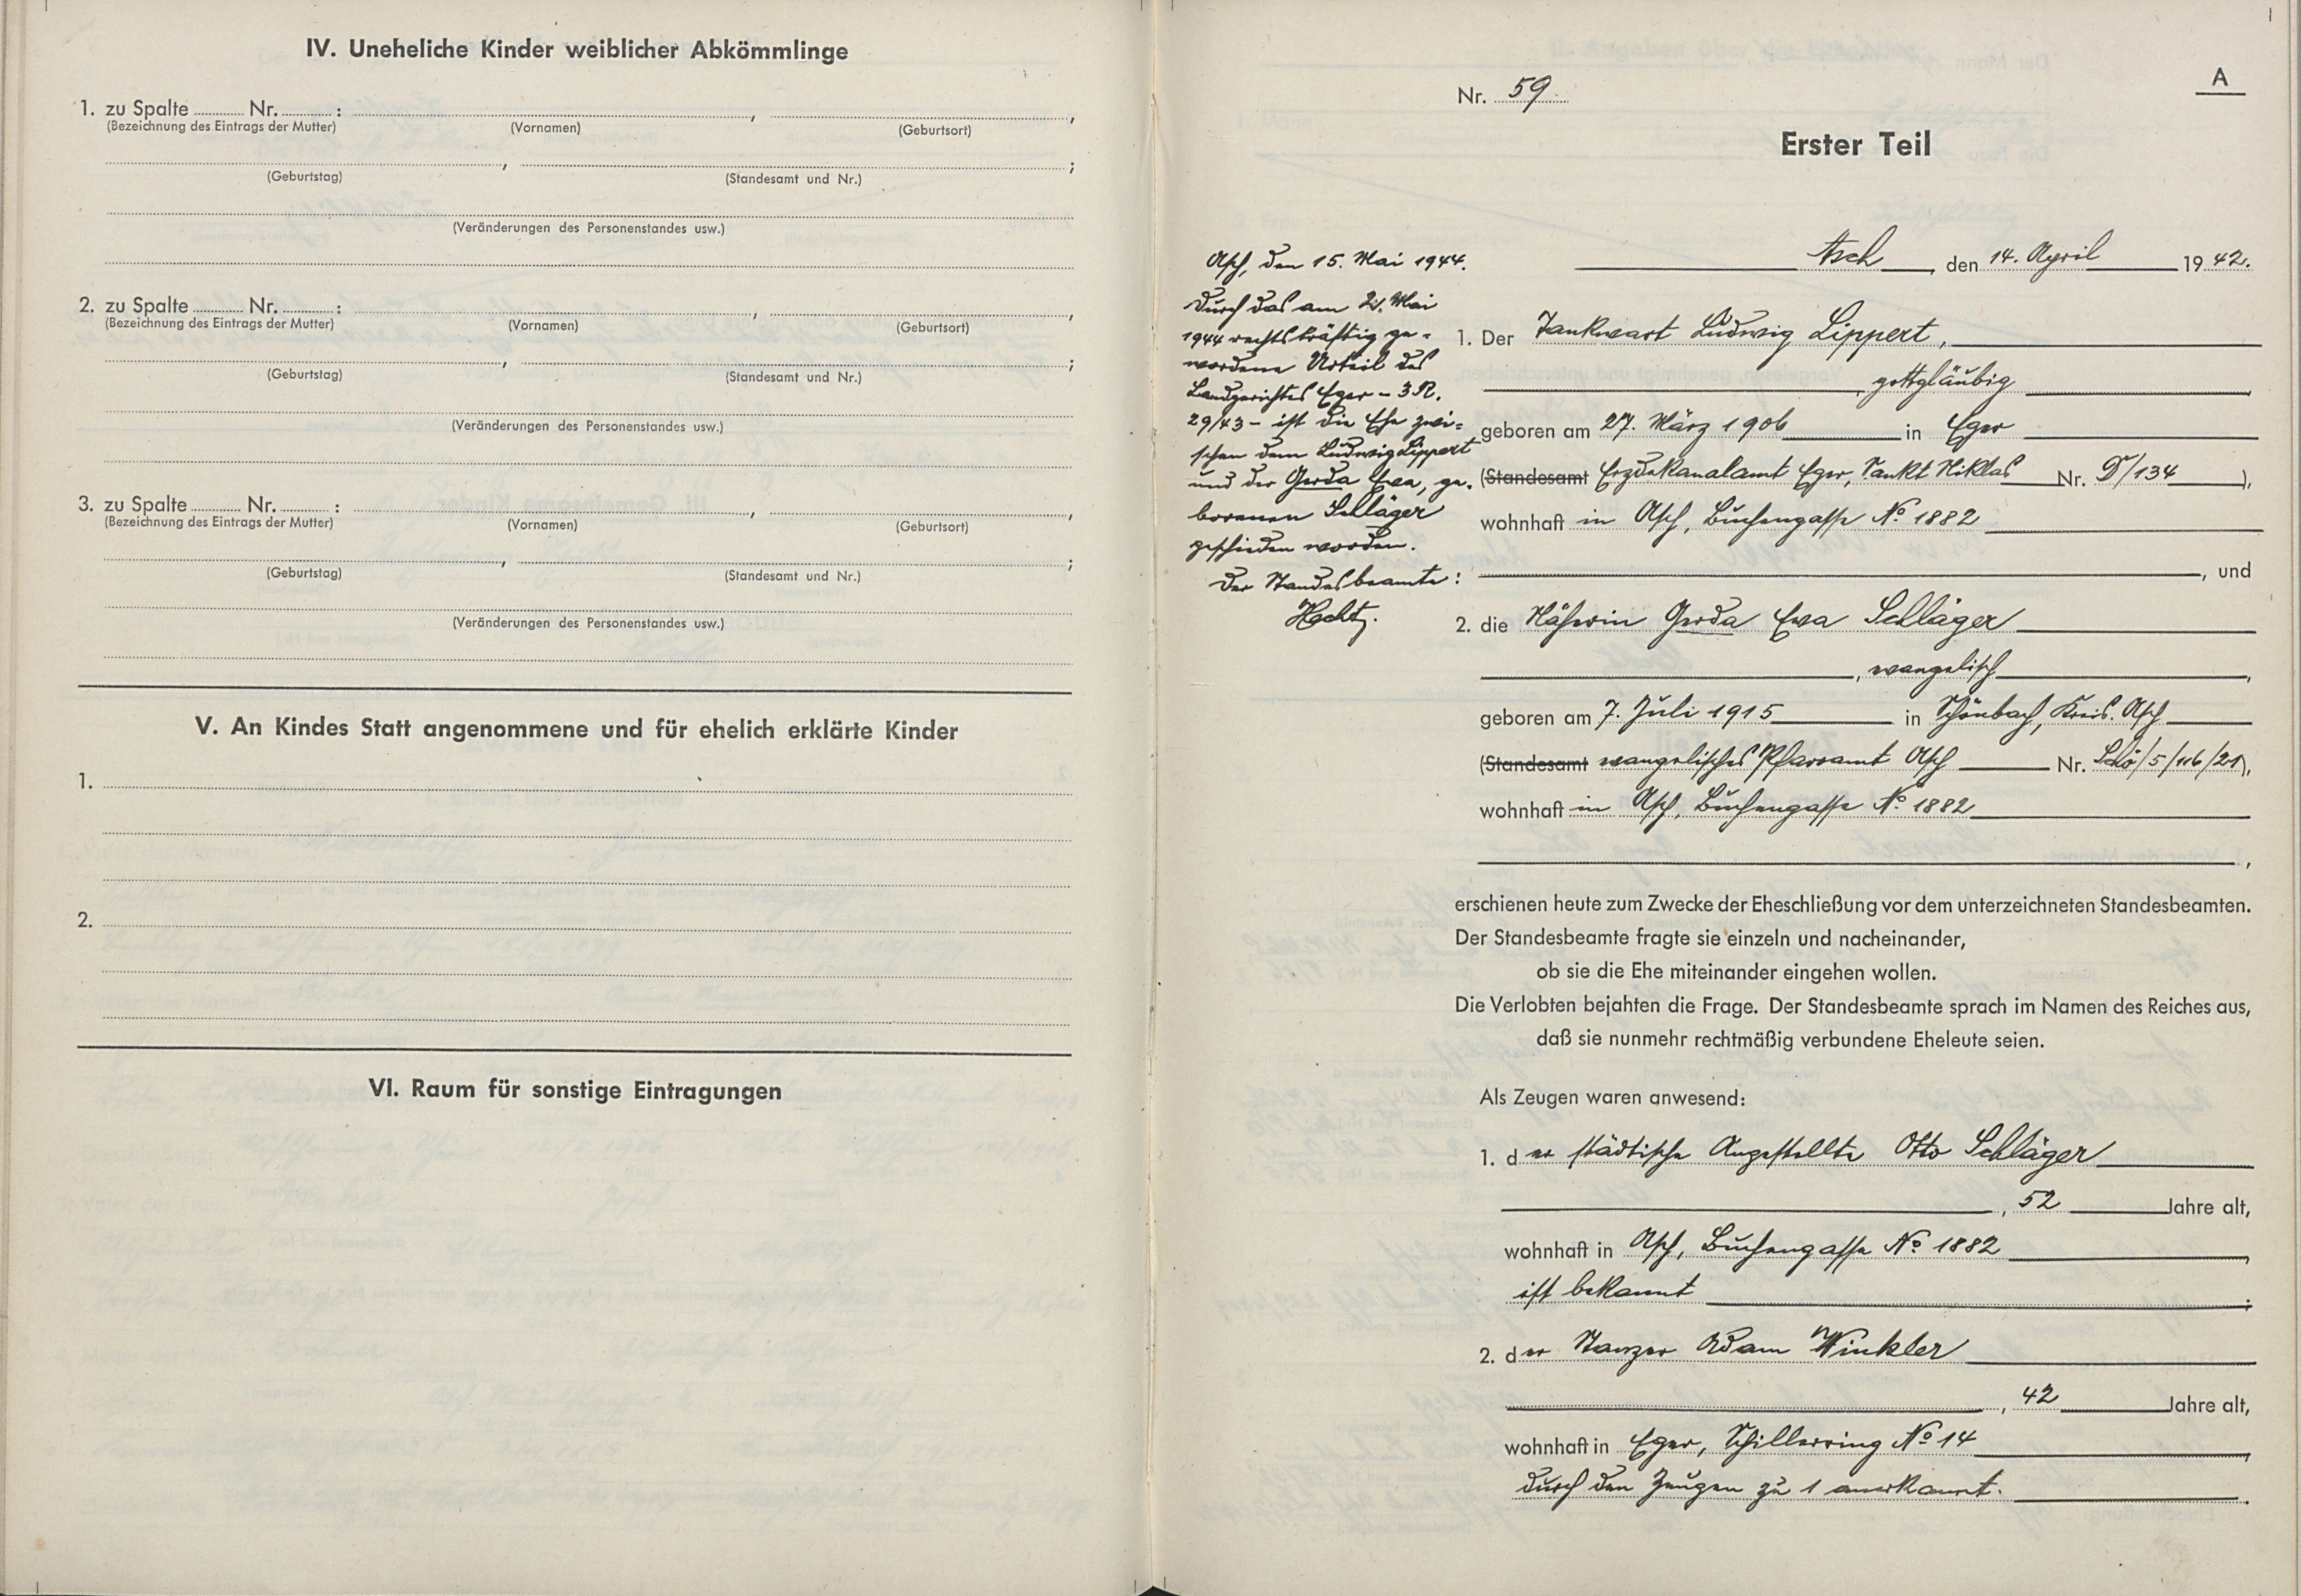 IV. Uneheliche Kinder weiblicher Abkömmlinge
1. zu Spalte Nr. : , ,
(Bezeichnung des Eintrags der Mutter) (Vornamen) (Geburtsort)
, ;
(Geburtstag) (Standesamt und Nr.)
(Veränderungen des Personenstandes usw.)
2. zu Spalte Nr. : , ,
(Bezeichnung des Eintrags der Mutter) (Vornamen) (Geburtsort)
, ;
(Geburtstag) (Standesamt und Nr.)
(Veränderungen des Personenstandes usw.)
3. zu Spalte Nr. : , ,
(Bezeichnung des Eintrags der Mutter) (Vornamen) (Geburtsort)
, ;
(Geburtstag) (Standesamt und Nr.)
(Veränderungen des Personenstandes usw.)
V. An Kindes Statt angenommene und für ehelich erklärte Kinder
1.
2.
VI. Raum für sonstige Eintragungen
A
Nr. 59
Erster Teil
Asch, den 14. April 1942.
Asch, den 15. Mai 1944.
Durch das am 2. Mai
1944 rechtskräftig ge=
wordene Urteil des
Landgerichtes Eger - 3 R.
29/43 - ist die Ehe zwi=
schen dem Ludwig Lippert
und der Gerda Eva, ge=
borenen Schläger
geschieden worden.
Der Standesbeamte:
Hecht.
1. Der Tankwart Ludwig Lippert,
, gottgläubig ,
geboren am 27. März 1906 in Eger
(Standesamt Erzdekanalamt Eger, Sankt Niklas Nr. T/134 ),
wohnhaft in Asch, Buchengasse No 1882
, und
2. die Näherin Gerda Eva Schläger
, evangelisch ,
geboren am 7. Juli 1915 in Schönbach, Kreis Asch
(Standesamt evangelisches Pfarramt Asch Nr. Schö/5/116/21),
wohnhaft in Asch, Buchengasse No 1882
,
erschienen heute zum Zwecke der Eheschließung vor dem unterzeichneten Standesbeamten.
Der Standesbeamte fragte sie einzeln und nacheinander,
ob sie die Ehe miteinander eingehen wollen.
Die Verlobten bejahten die Frage. Der Standesbeamte sprach im Namen des Reiches aus,
daß sie nunmehr rechtmäßig verbundene Eheleute seien.
Als Zeugen waren anwesend:
1. der städtische Angestellte Otto Schläger
, 52 Jahre alt,
wohnhaft in Asch, Buchengasse No 1882 ,
ist bekannt ;
2. der Stanzer Adam Winkler
, 42 Jahre alt,
wohnhaft in Eger, Schillerring No 14 ,
durch den Zeugen zu 1 anerkannt.